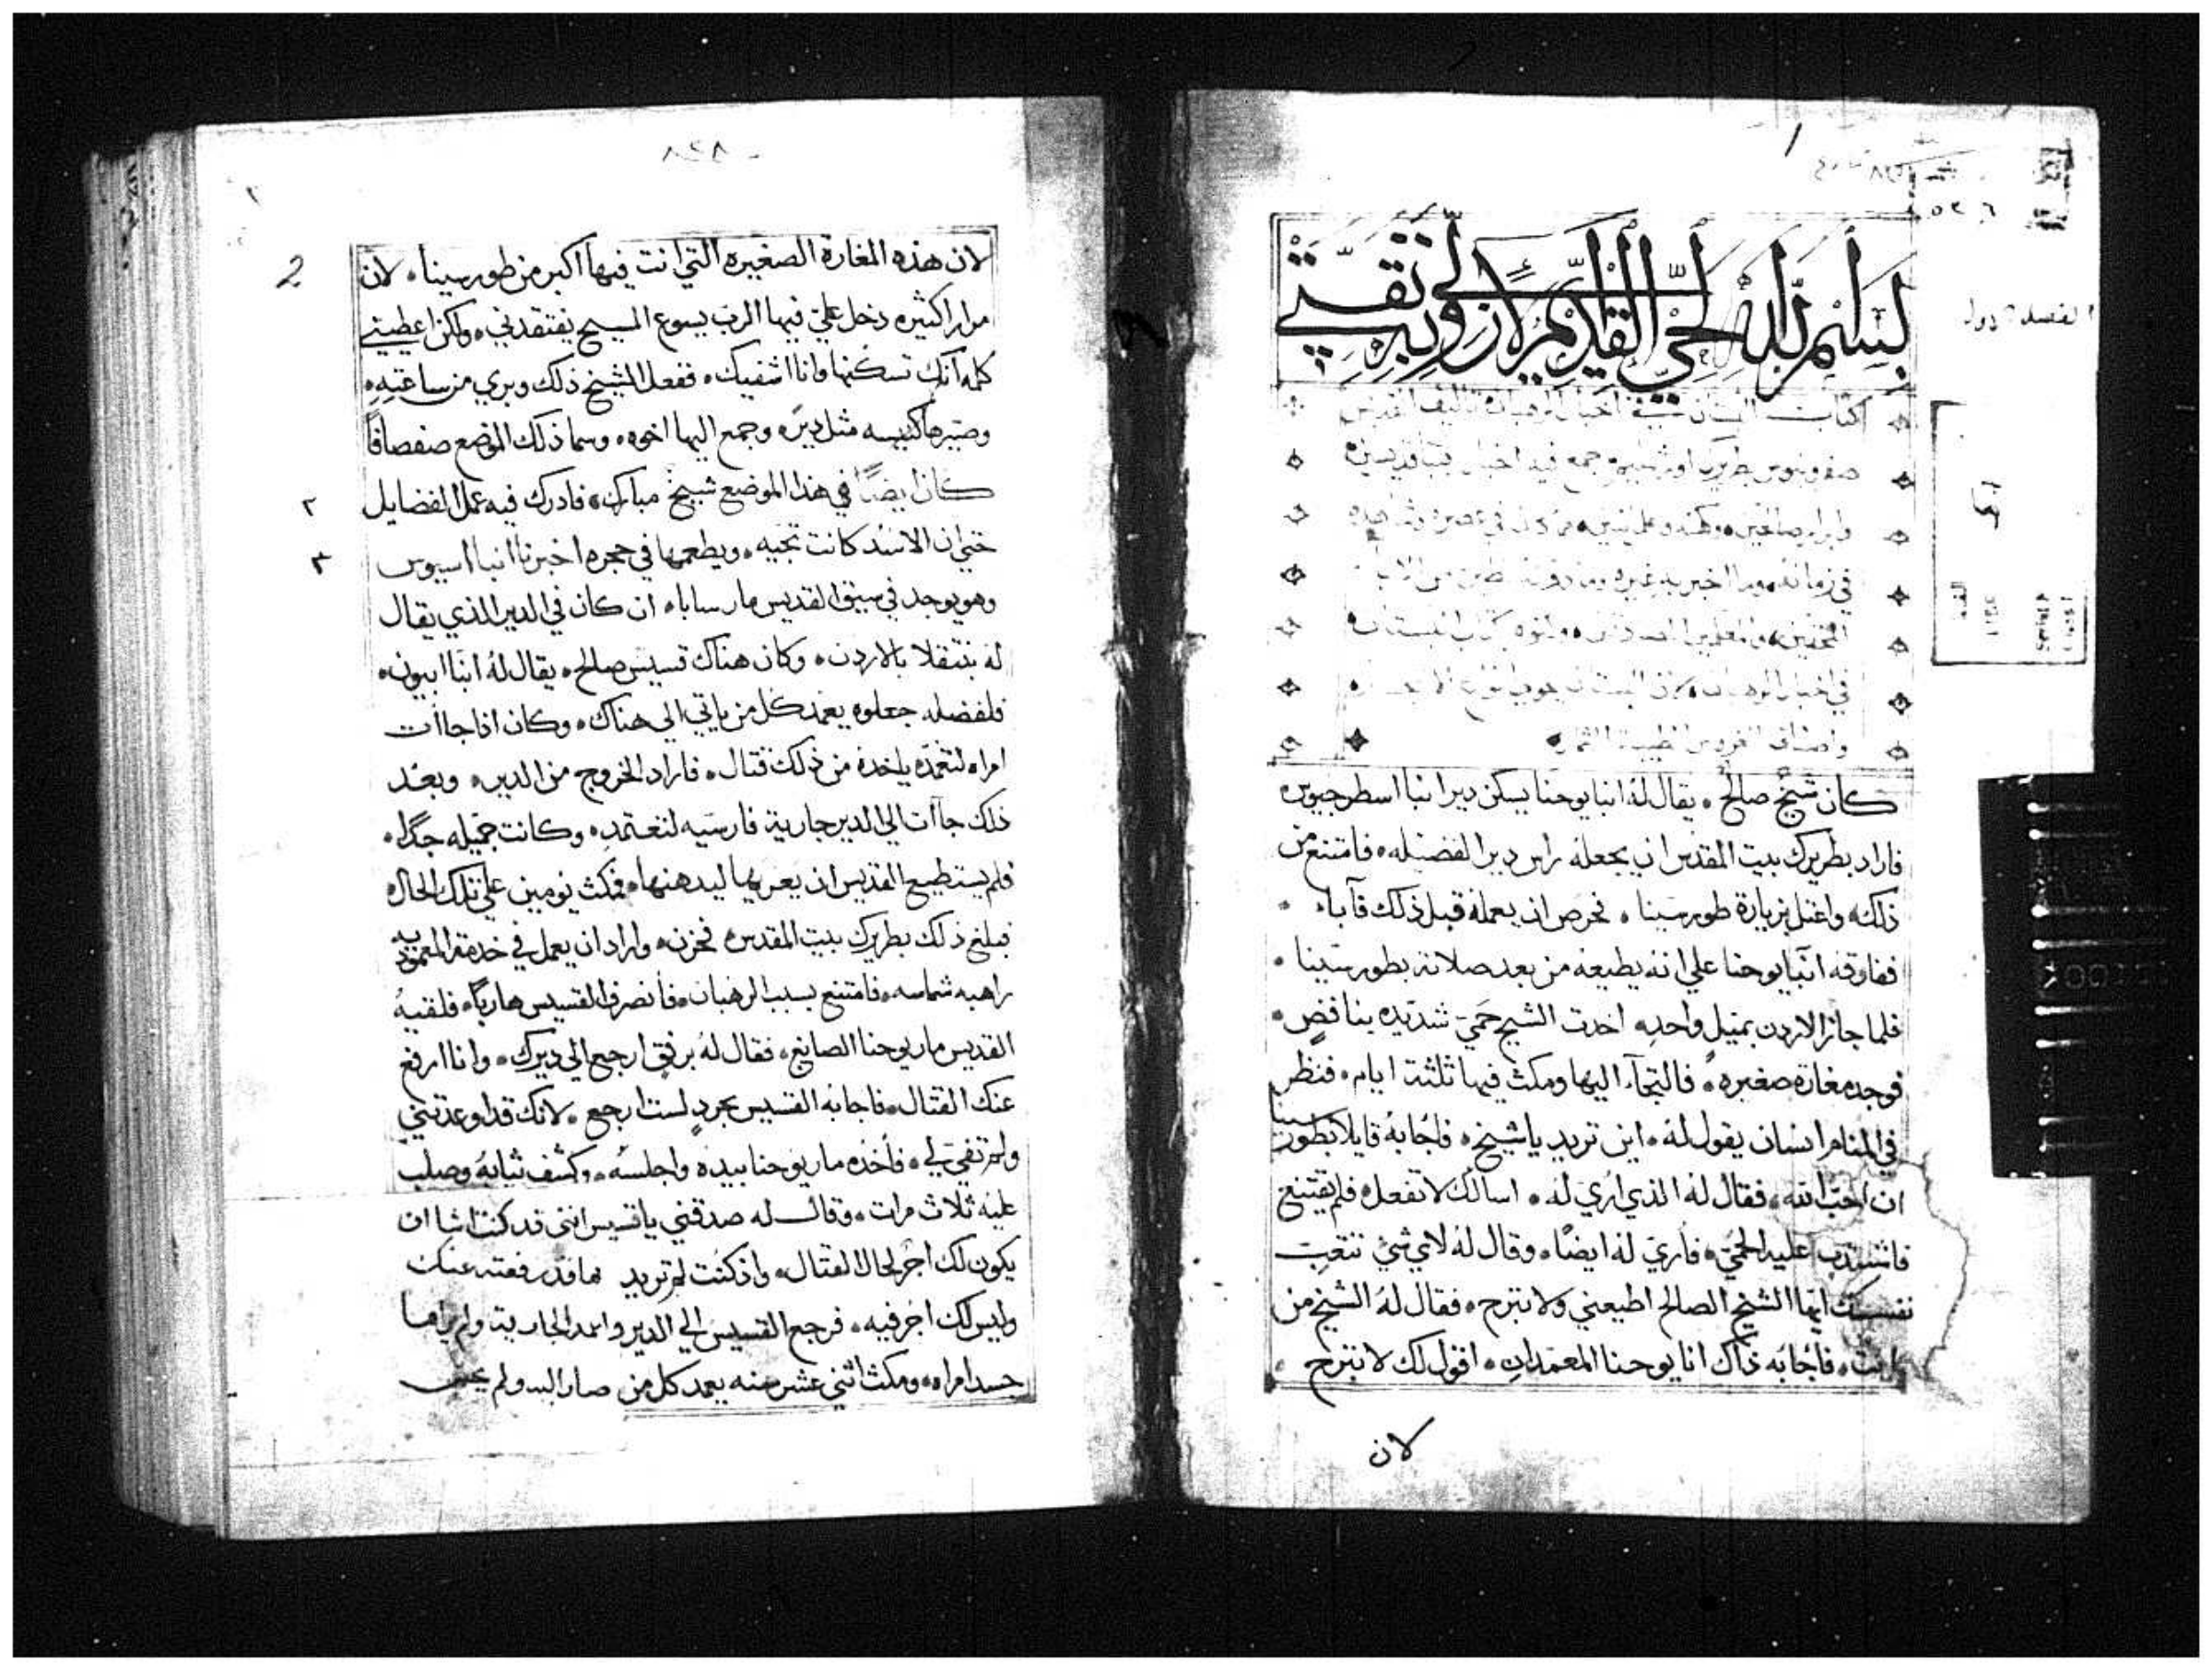 بسم الله الحي القديم الازلي وبه ثقتي
كتاب البستان في اخبار الرهبان تاليف القديس
صفرونيوس بطريرك اورشليم جمع فيه اخبار
وابرار صالحين وكهنه
في زمانه وما اخبر به غيره
كتاب البستان
في اخبار الرهبان لان البستان
كان شيخ صالح ٠ يقال له انبا يوحنا يسكن دير انبا اسطرجيوس
فاراد بطريرك بيت المقدس ان يجعله رايس دير الفضيله ٠ فامتنع من
ذلك ٠ واعتل بزيارة طور سينا ٠ فحرص ان يعمله قبل ذلك فآبا ٠
ففارقه انبا يوحنا علي انه يطيعه من بعد صلاته بطور سينا ٠
فلما جاز الاردن بميل واحد ٠ اخدت الشيخ حمي شديده بنافض ٠
فوجد مغارة صغيره ٠ فالتجآء اليها ومكث فيها ثلثة ايام ٠ فنظر
في المنام انسان يقول له ٠ اين تريد يا شيخ ٠ فاجابه قايلا بطور سينا
ان احب الله ٠ فقال له الذي اري له ٠ اسالك لا تفعل ٠ فلم يقتنع
فاشتدت عليه الحمي ٠ فاري له ايضا ٠ وقال له لاي شي تتعب
نفسك ايها الشيخ الصالح اطيعني ولا تبرح ٠ فقال له الشيخ من
انت ٠ فاجابه ذاك انا يوحنا المعمدان ٠ اقول لك لا تبرح ٠
لان
٢
2
لان هذه المغارة الصغيره التي انت فيها اكبر من طور سينا ٠ لان
مرارا كثيره دخل علي فيها الرب يسوع المسيح يفتقدني ٠ ولكن اعطيني
كلمه آنك تسكنها وانا اشفيك ٠ ففعل الشيخ ذلك وبري من ساعتيه ٠
وصيرها كنيسه مثل دير ٠ وجمع اليها اخوه ٠ وسما ذلك الموضع صفصافاً
٢ كان ايضاً في هذا الموضع شيخ مبارك ٠ فادرك فيه عمل الفضايل
٣ حتي ان الاسد كانت تجيه ٠ ويطعمها في حجره اخبرنا انبا اسيوس
وهو يوجد في سيق القديس مار سابا ٠ ان كان في الدير الذي يقال
له بنتقلا بالاردن ٠ وكان هناك قسيس صالح ٠ يقال له انبا ابيون ٠
فلفضله جعلوه يعمد كل من ياتي الي هناك ٠ وكان اذا جاات
امراه لتعمد ياخده من ذلك قتال ٠ فاراد الخروج من الدير ٠ وبعد
ذلك جاآت الي الدير جارية فارسيه لتعتمد ٠ وكانت جميله جداً ٠
فلم يستطيع القديس ان يعريها ليدهنها ٠ فمكث يومين علي تلك الحال ٠
فبلغ ذلك بطريرك بيت المقدس فحزن ٠ واراد ان يعمل في خدمة المعموديه
راهبه شماسه ٠ فامتنع بسبب الرهبان ٠ فانصرف القسيس هارباً ٠ فلقيه
القديس مار يوحنا الصابغ ٠ فقال له برفق ارجع الي ديرك ٠ وانا ارفع
عنك القتال ٠ فاجابه القسيس بحرد لست ارجع ٠ لانك قد اوعدتني
ولم تفي لي ٠ فأخذه مار يوحنا بيده واجلسه ٠ وكشف ثيابه وصلب
عليه ثلاث مرات ٠ وقال له صدقني يا قسيس انني قد كنت اشا ان
يكون لك اجر لحال القتال ٠ واذ كنت لم تريد هاقد رفعته عنك
وليس لك اجر فيه ٠ فرجع القسيس الي الدير واعمد الجارية ولم يراها
جسد امراه ٠ ومكث اثني عشر سنه يعمد كل من صار اليه ولم يحس